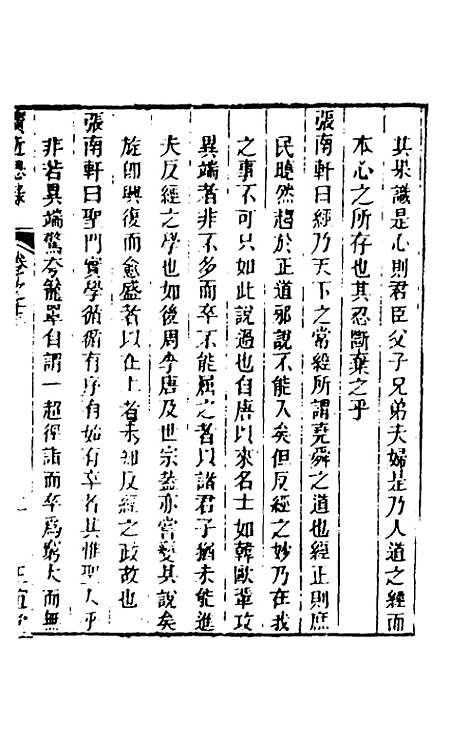 其果識是心則君臣父子兄弟夫婦是乃人道之經而
本心之所存也其忍斷棄之乎
張南軒曰經乃天下之常經所謂堯舜之道也經正則庶
民曉然趨於正道邪說不能入矣但反經之妙乃在我
之事不可只如此說過也自唐以來名士如韓歐輩攻
異端者非不多而卒不能屈之者以諸君子猶未能進
夫反經之學也如後周李唐及世宗蓋亦嘗變其說矣
旋卽興復而愈盛者以在上者未知反經之政故也
張南軒曰聖門實學循循有序有始有卒者其惟聖人乎
非若異端驚夸籠罩自謂一超徑詣而卒爲窮大而無
續近思錄 卷之十三
正誼堂